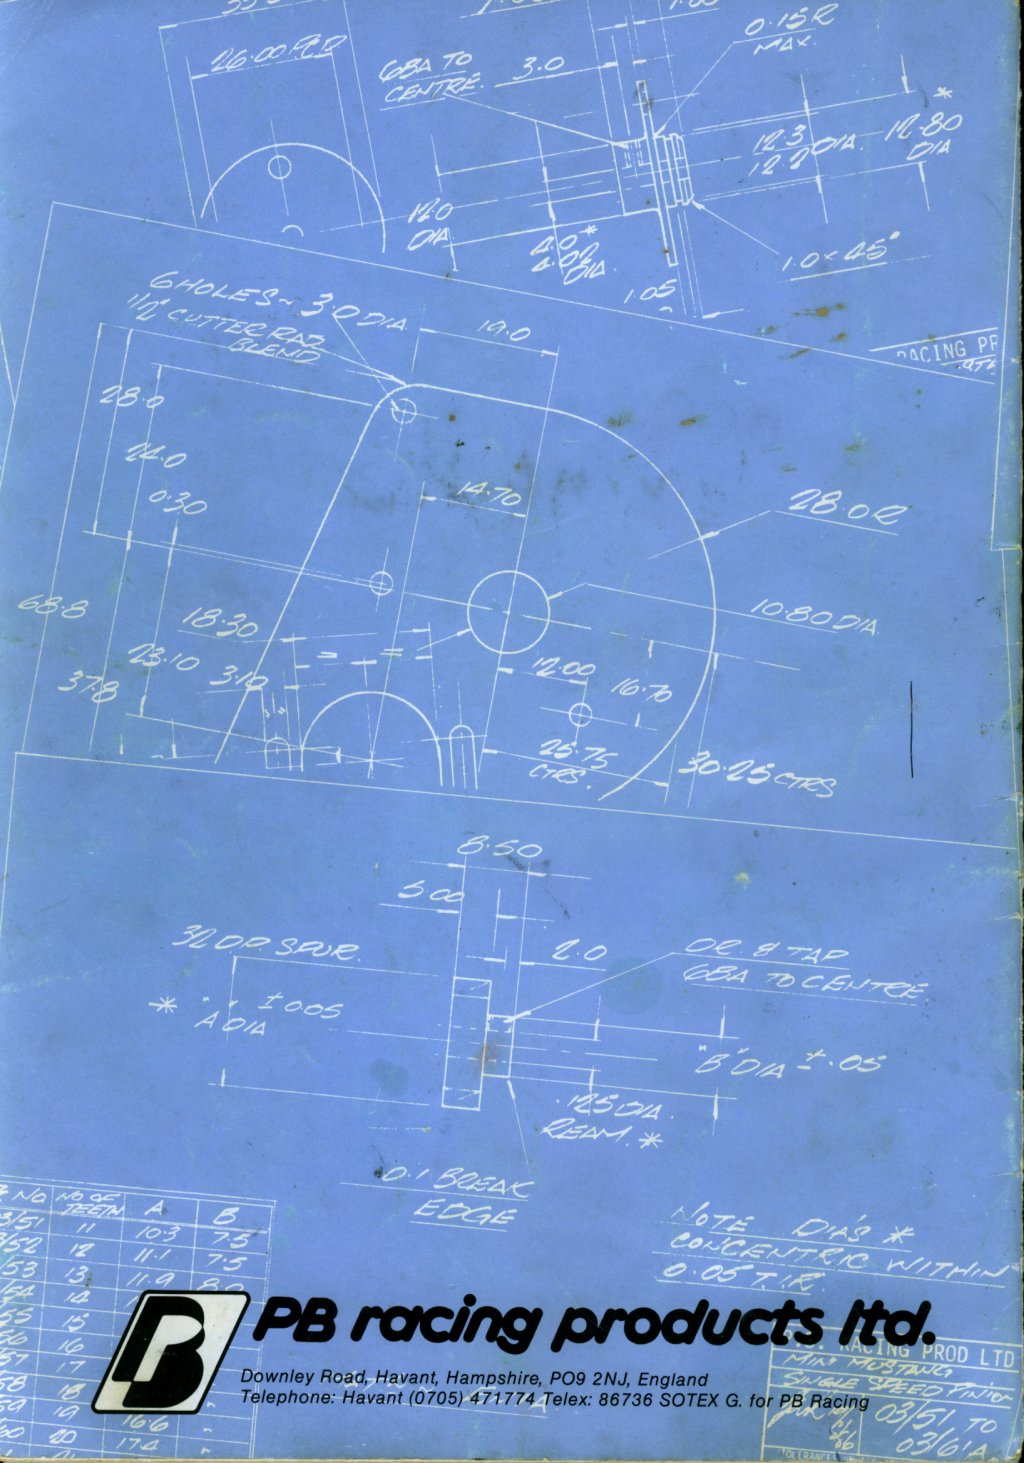 26.00 PCD
6BA TO
CENTRE.
3.0
0.15 R
MAX.
12.3
12.2 DIA.
*
12.80
DIA
12.0
DIA
4.0 *
DIA.
1.05
1.0 x 45°
RACING PR
6 HOLES ~ 3.0 DIA
1/2" CUTTER RAD
BLEND
19.0
28.0
24.0
0.30
14.70
28.0 R
68.8
18.30
10.80 DIA.
23.10
3.10
12.00
37.8
16.70
25.75
CTRS.
30.25 CTRS
8.50
5.00
32 D.P. SPUR.
2.0
DR & TAP
6BA TO CENTRE
* "A" DIA ± 0.05
"B" DIA ± .05
.125 DIA.
REAM. *
0.1 BREAK
EDGE
NO NO OF TEETH A B
3/51 11 10.3 7.5
/52 12 11.1 7.5
/53 13 11.9 8.0
14
15
16
17
18
19 16.6 "
20 17.4 "
NOTE DIA'S *
CONCENTRIC WITHIN
0.05 T.I.R.
PB racing products ltd.
Downley Road, Havant, Hampshire, PO9 2NJ, England
Telephone: Havant (0705) 471774 Telex: 86736 SOTEX G. for PB Racing
RACING PROD LTD
MINI MUSTANG
SINGLE SPEED PINION
03/51 TO
03/61A
TOLERANCES